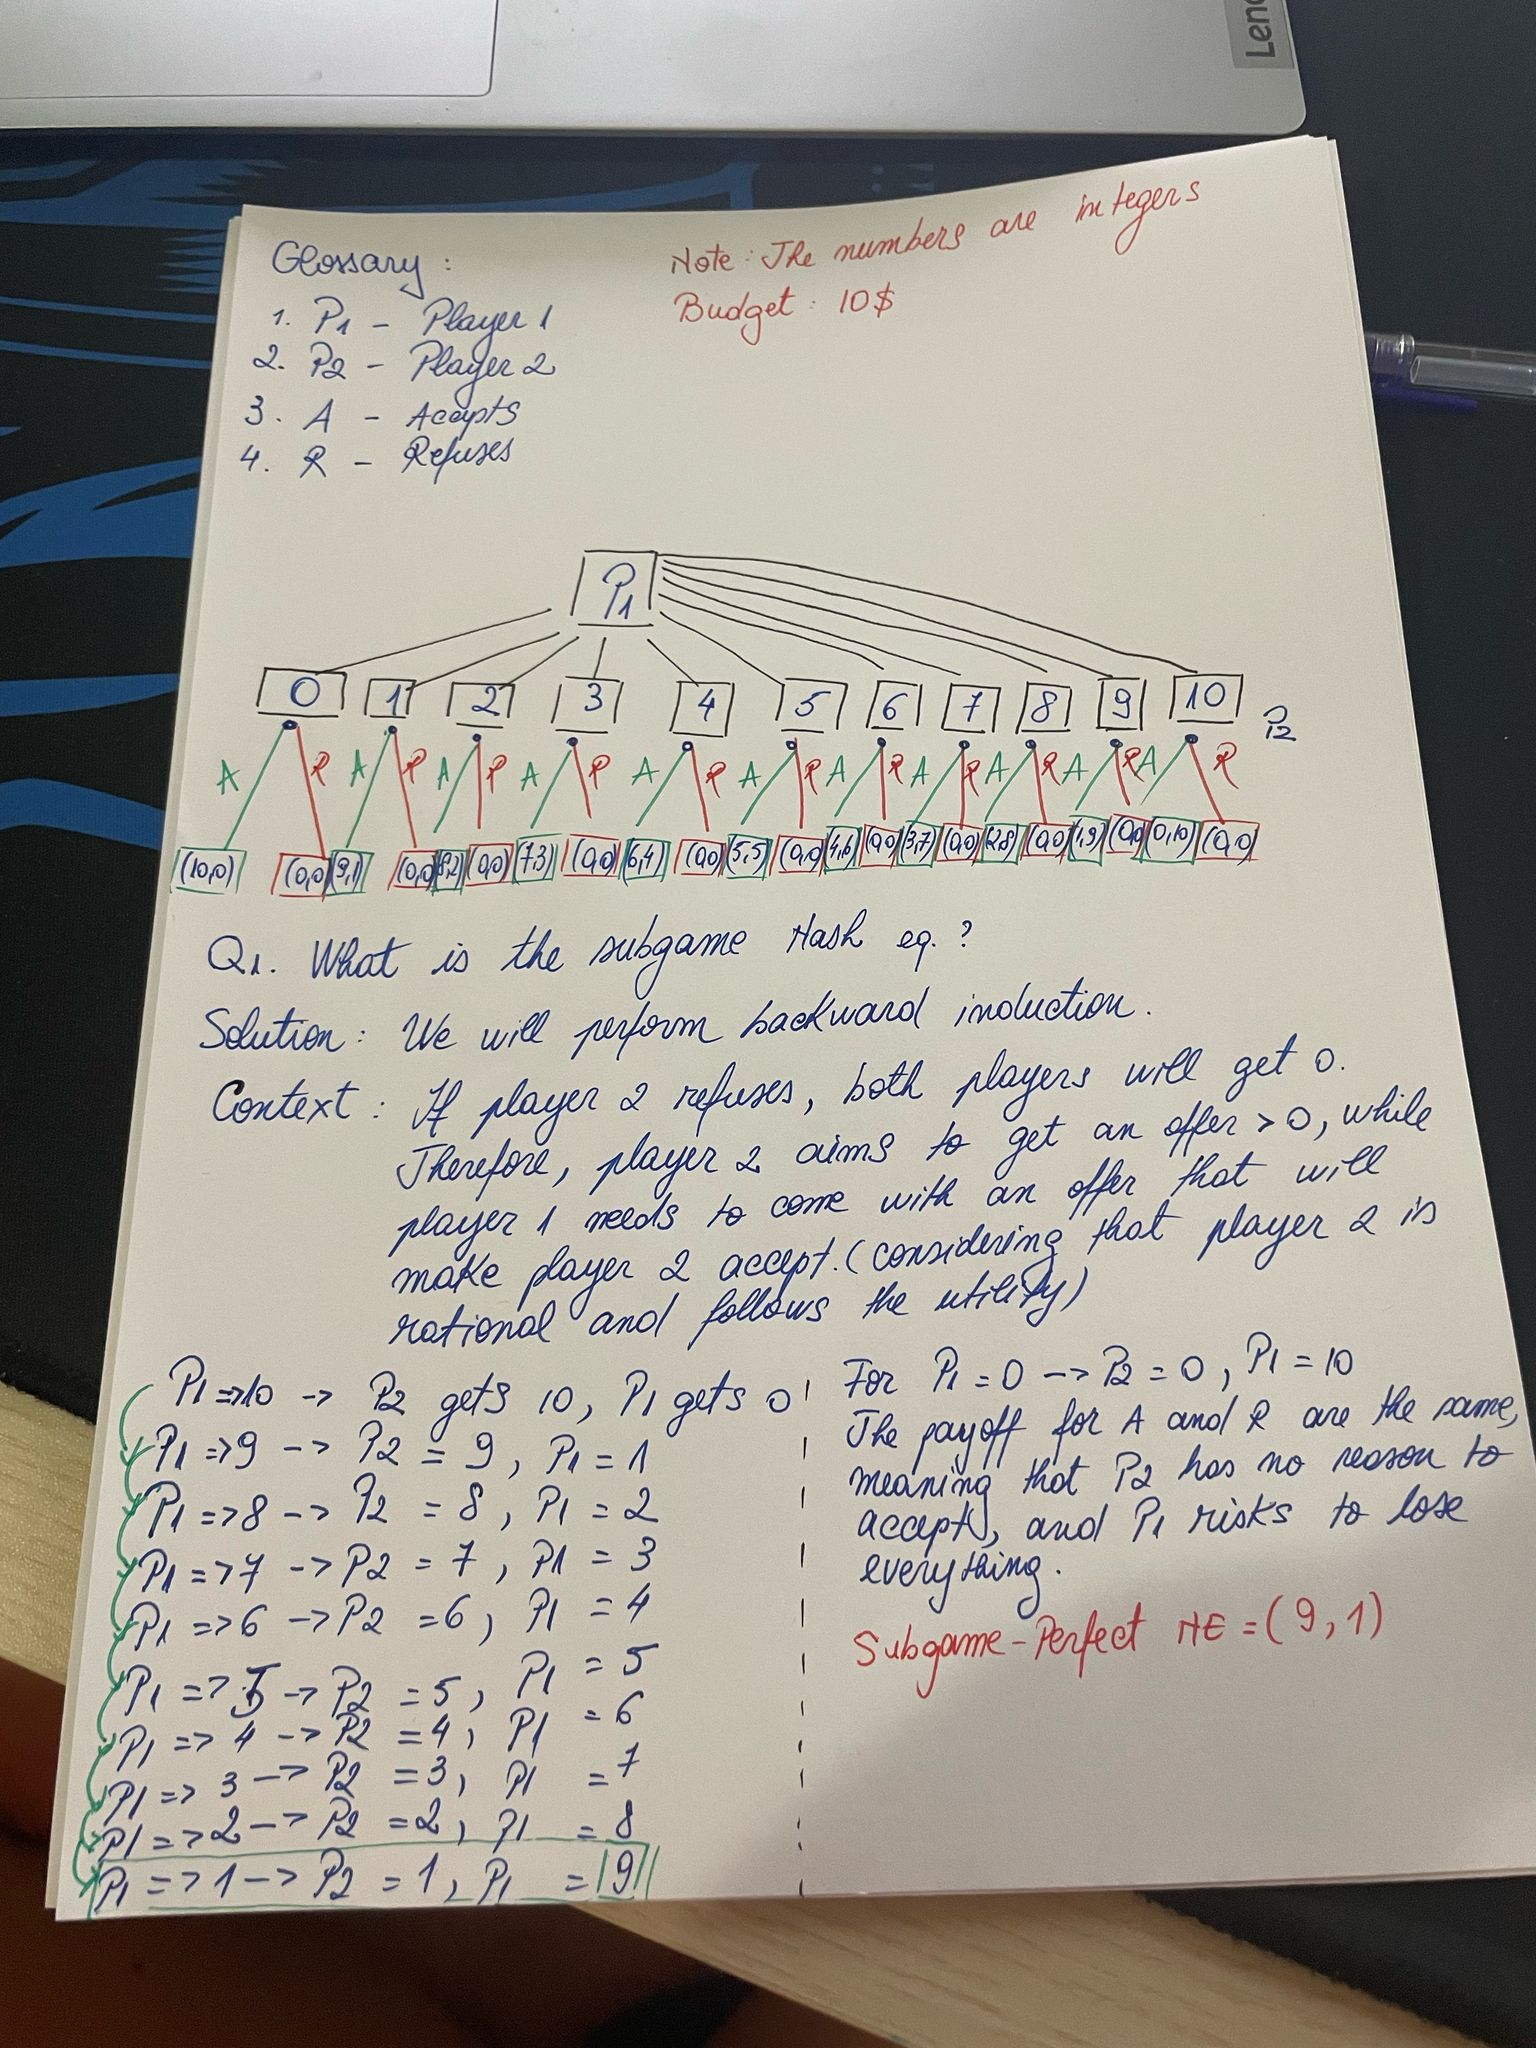 Leno
Glossary:
Note: The numbers are integers
Budget: 10$
1. P1 - Player 1
2. P2 - Player 2
3. A - Accepts
4. R - Refuses
P1
0 1 2 3 4 5 6 7 8 9 10 P2
A R A R A R A R A R A R A R A R A R A R A R
(10,0) (0,0) (9,1) (0,0) (8,2) (0,0) (7,3) (0,0) (6,4) (0,0) (5,5) (0,0) (4,6) (0,0) (3,7) (0,0) (2,8) (0,0) (1,9) (0,0) (0,10) (0,0)
Q1. What is the subgame Nash eq.?
Solution: We will perform backward induction.
Context: If player 2 refuses, both players will get 0.
Therefore, player 2 aims to get an offer > 0, while
player 1 needs to come with an offer that will
make player 2 accept. (considering that player 2 is
rational and follows the utility)
P1 => 10 -> P2 gets 10, P1 gets 0
P1 => 9 -> P2 = 9, P1 = 1
P1 => 8 -> P2 = 8, P1 = 2
P1 => 7 -> P2 = 7, P1 = 3
P1 => 6 -> P2 = 6, P1 = 4
P1 => 5 -> P2 = 5, P1 = 5
P1 => 4 -> P2 = 4, P1 = 6
P1 => 3 -> P2 = 3, P1 = 7
P1 => 2 -> P2 = 2, P1 = 8
P1 => 1 -> P2 = 1, P1 = 9
For P1 = 0 -> P2 = 0, P1 = 10
The payoff for A and R are the same,
meaning that P2 has no reason to
accept, and P1 risks to lose
everything.
Subgame-Perfect NE = (9,1)